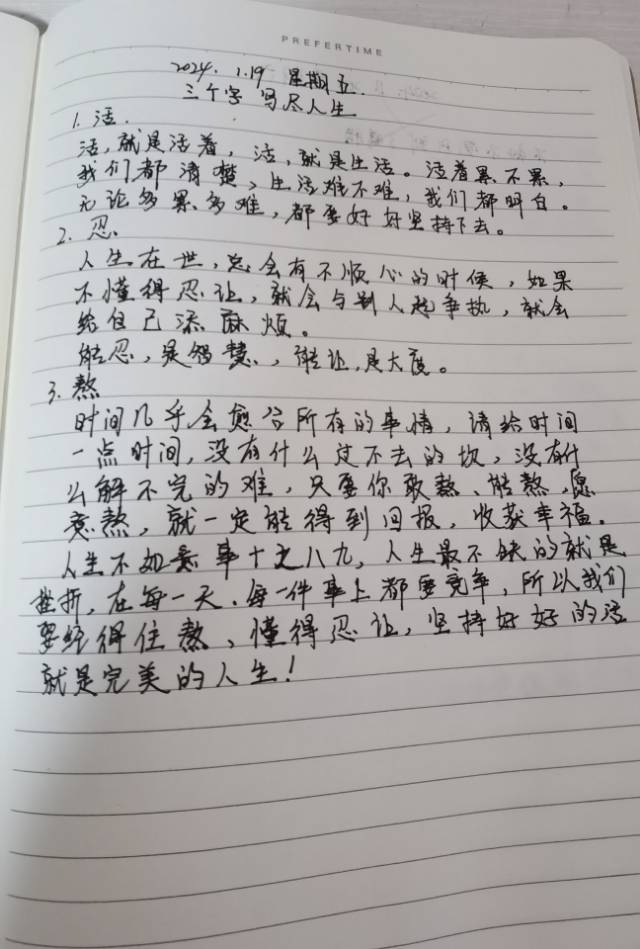 PREFERTIME
2024. 1.19 星期五.
三个字 写尽人生
1. 活.
活,就是活着,活,就是生活。活着累不累,
我们都清楚、生活难不难,我们都明白。
无论多累、多难,都要好好坚持下去。
2. 忍.
人生在世,总会有不顺心的时候,如果
不懂得忍让,就会与别人起争执,就会
给自己添麻烦。
能忍,是智慧,能让,是大度。
3. 熬
时间几乎会愈合所有的事情,请给时间
一点时间,没有什么过不去的坎,没有什
么解不完的难,只要你敢熬、能熬、愿
意熬,就一定能得到回报,收获幸福.
人生不如意事十之八九,人生最不缺的就是
挫折,在每一天、每一件事上都要竞争,所以我们
要经得住熬、懂得忍让,坚持好好的活
就是完美的人生!